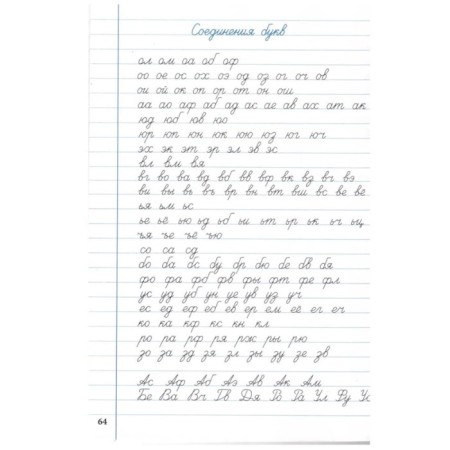 Соединения букв
ол ом оа об оф
оо ое ос ох оэ од оз ог оч ов
ои ой ок оп ор от он ош
аа ао аф аб ад ас ае ав ах ат ак
юд юб юв юо
юр юп юн юк юю юз юг юч
эх эк эт эр эл эв эс
вл вм вя
вг во ва вд вб вв вф вк вз вч вэ
ви вы вь въ вр вн вт вш вс ве вё
ья ьм ьс
ье ьё ью ьд ьб ьи ьт ьр ьк ьч ьщ
ъя ъе ъё ъю
со са сд
бо ба бс бу бр бю бе бв бя
фо фа фб фв фы фт фе фл
ус уд уб ун уе ув уз уч
ес ед еф еб ев ер ем её ег еч
ко ка кф кс кн кл
ро ра рф ря рж ры рю
зо за зд зя зл зы зу зе зв
Ас Аф Аб Аэ Ав Ак Ам
Бе Ва Вч Гв Дя Го Га Ул Фу
64